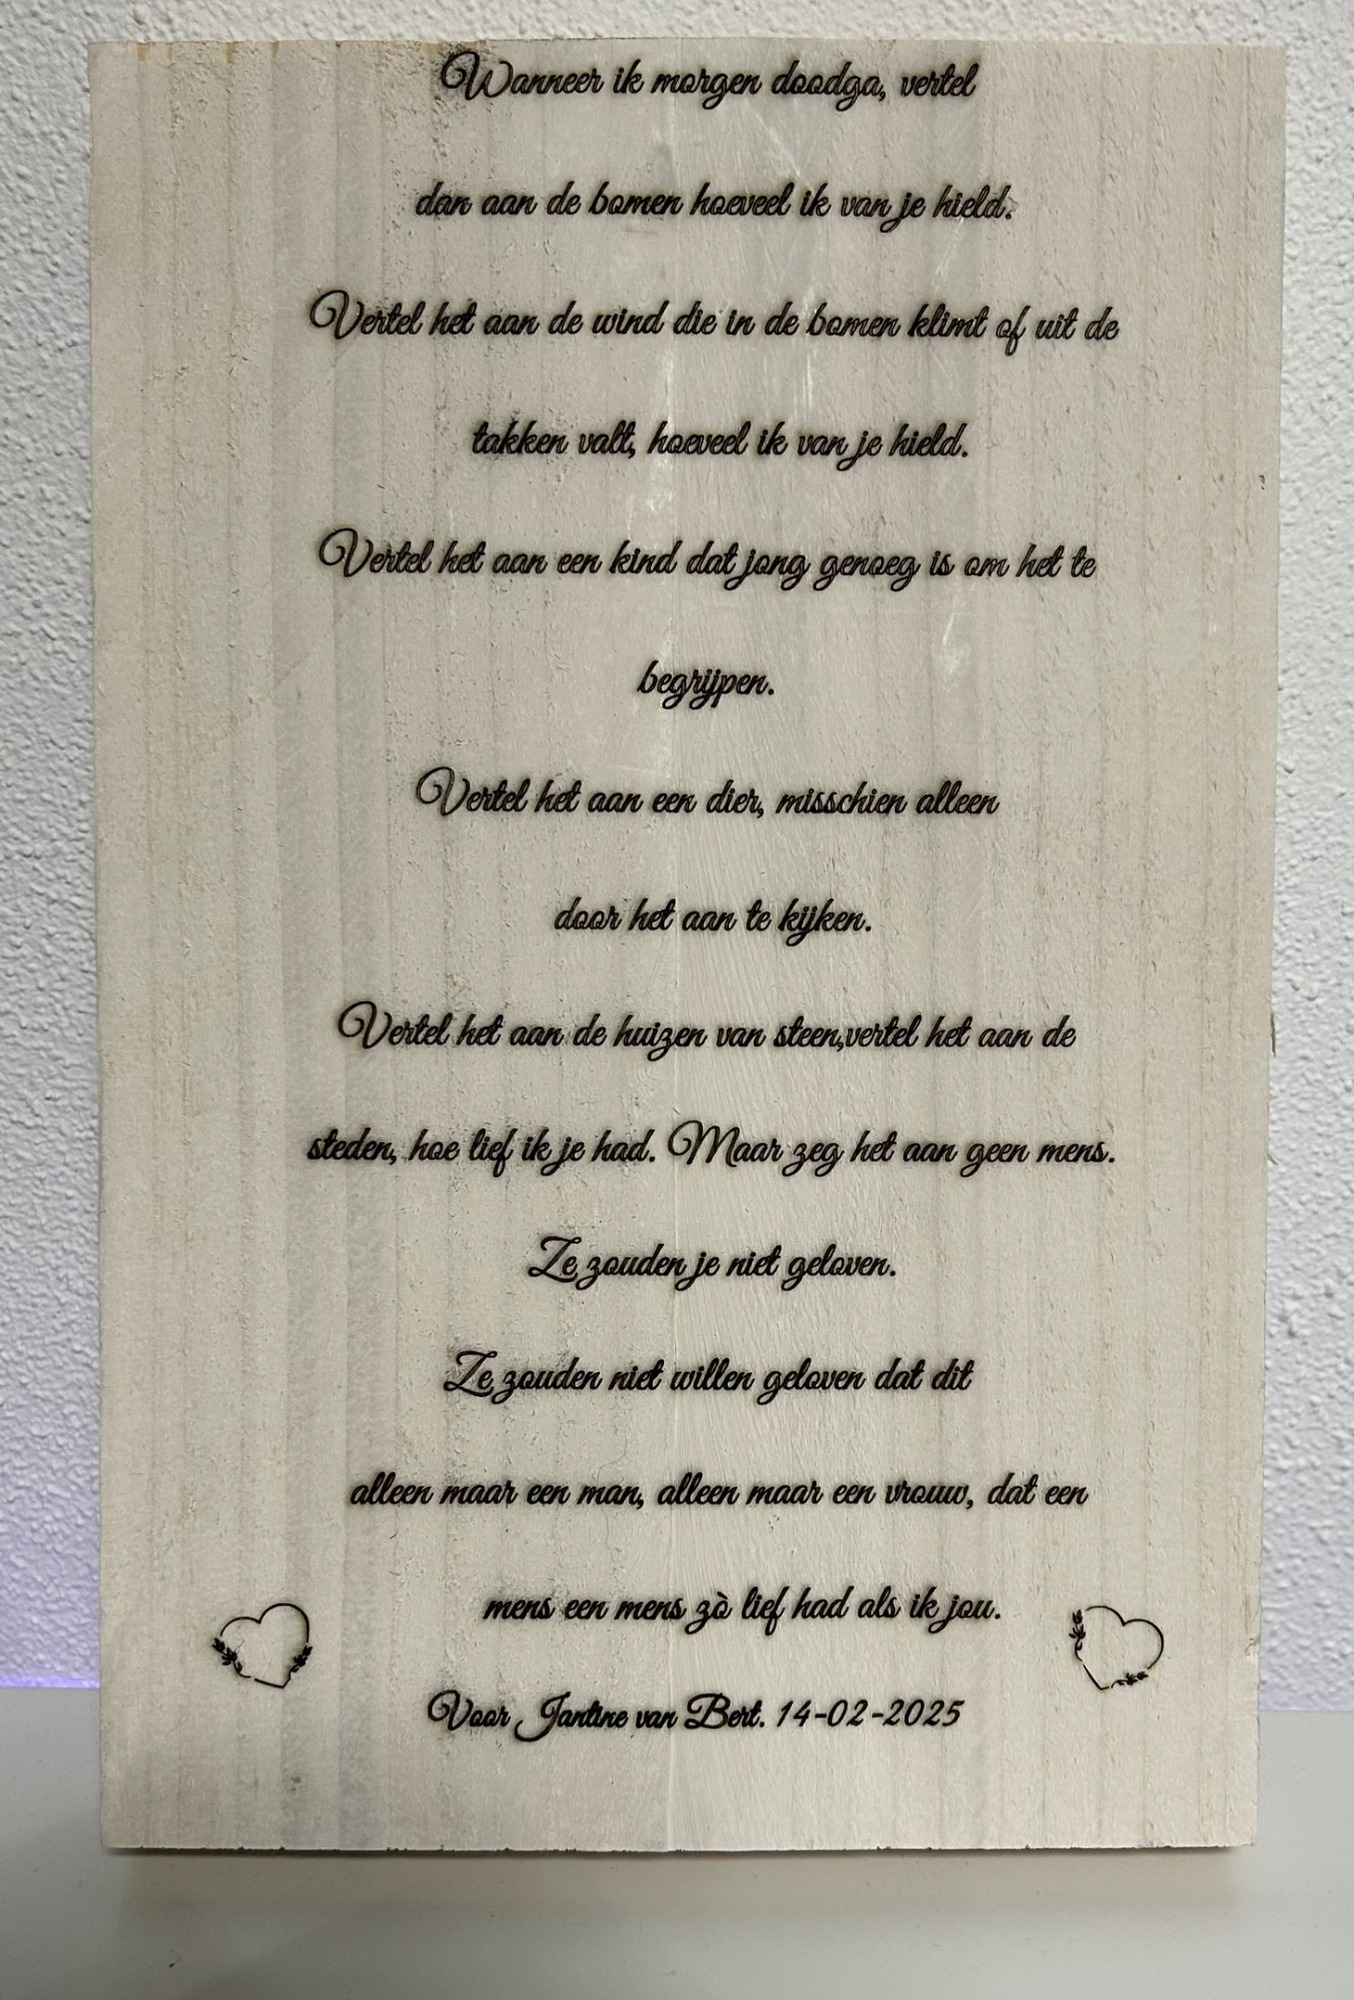 Wanneer ik morgen doodga, vertel
dan aan de bomen hoeveel ik van je hield.
Vertel het aan de wind die in de bomen klimt of uit de
takken valt, hoeveel ik van je hield.
Vertel het aan een kind dat jong genoeg is om het te
begrijpen.
Vertel het aan een dier, misschien alleen
door het aan te kijken.
Vertel het aan de huizen van steen,vertel het aan de
steden, hoe lief ik je had. Maar zeg het aan geen mens.
Ze zouden je niet geloven.
Ze zouden niet willen geloven dat dit
alleen maar een man, alleen maar een vrouw, dat een
mens een mens zò lief had als ik jou.
Voor Jantine van Bert. 14-02-2025